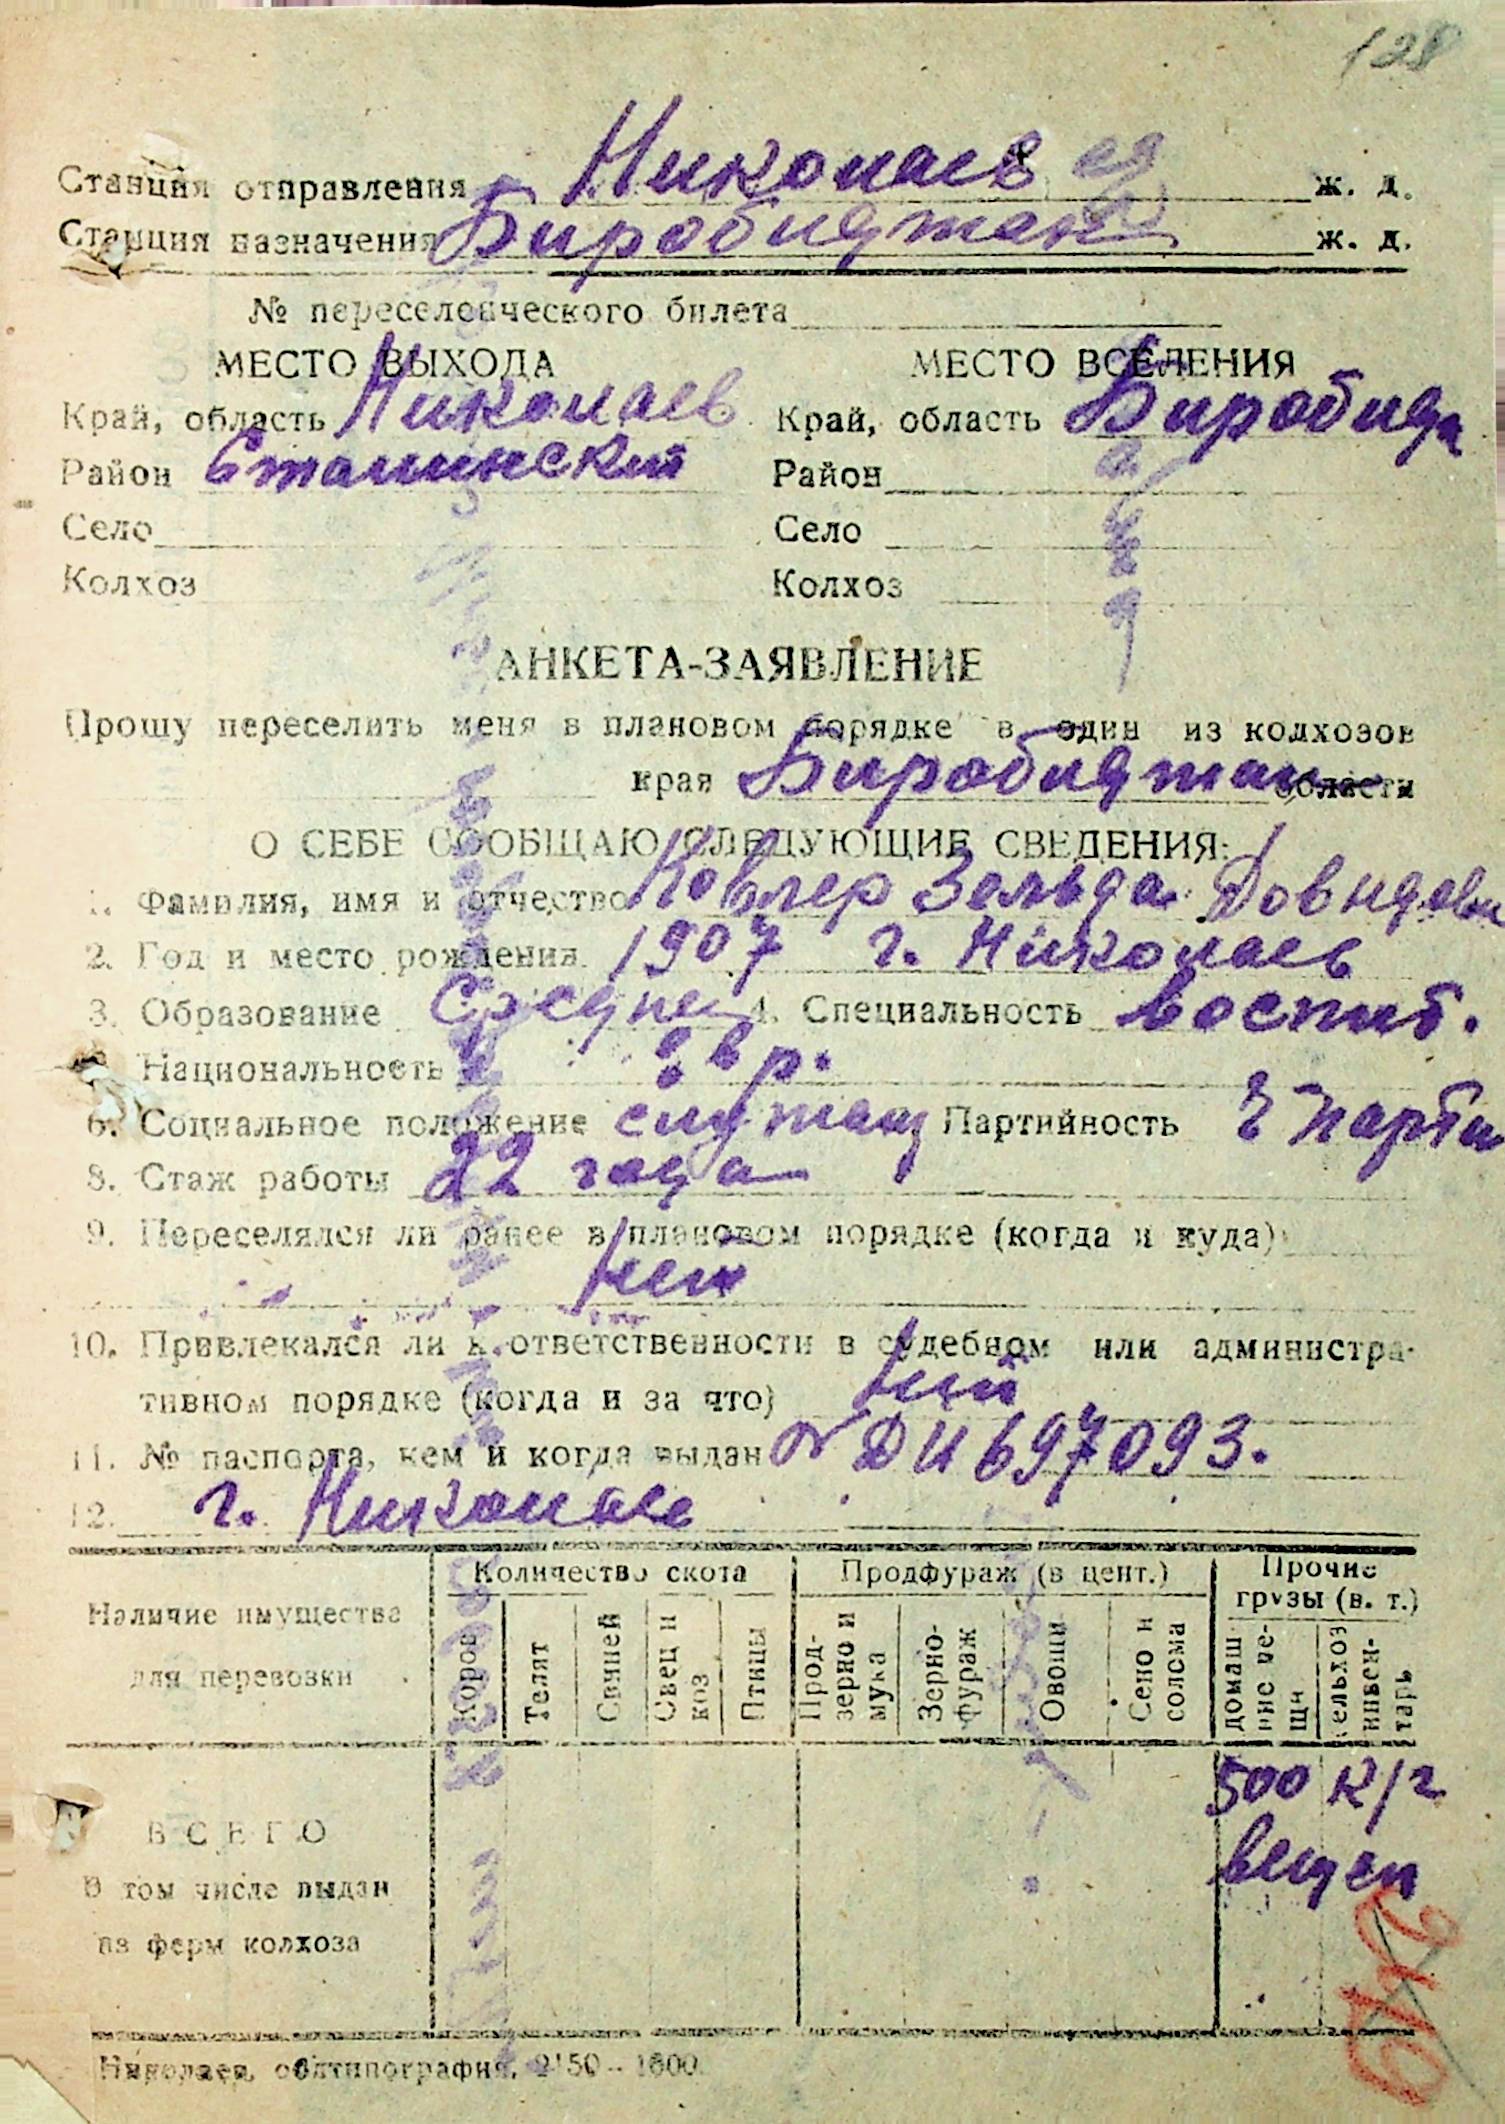 128
Станция отправления Николаев ж. д.
Станция назначения Биробиджан ж. д.
№ переселенческого билета
МЕСТО ВЫХОДА МЕСТО ВСЕЛЕНИЯ
Край, область Николаев Край, область Биробидж
Район Сталинский Район
Село Село
Колхоз Колхоз
АНКЕТА-ЗАЯВЛЕНИЕ
Прошу переселить меня в плановом порядке в один из колхозов
края Биробиджан области
О СЕБЕ СООБЩАЮ СЛЕДУЮЩИЕ СВЕДЕНИЯ:
1. Фамилия, имя и отчество Ковлер Зельда Довидовн
2. Год и место рождения 1907 г. Николаев
3. Образование Средне 4. Специальность воспит.
Национальность евр.
6. Социальное положение служащ Партийность
8. Стаж работы 22 года
9. Переселялся ли ранее в плановом порядке (когда и куда)
нет
10. Привлекался ли к ответственности в судебном или администра-
тивном порядке (когда и за что) нет
11. № паспорта, кем и когда выдан № 697093.
12. г. Николаев
Наличие имущества для перевозки
Количество скота Продфураж (в цент.) Прочие грузы (в. т.)
Коров Телят Свиней Овец и коз Птицы Прод-зерно и мука Зерно-фураж Овощи Сено и солома домашние ве-щи сельхоз инвен-тарь
500 к/г
вещей
ВСЕГО
В том числе выдан
из ферм колхоза
Николаев, облтипография, 2150—1600.